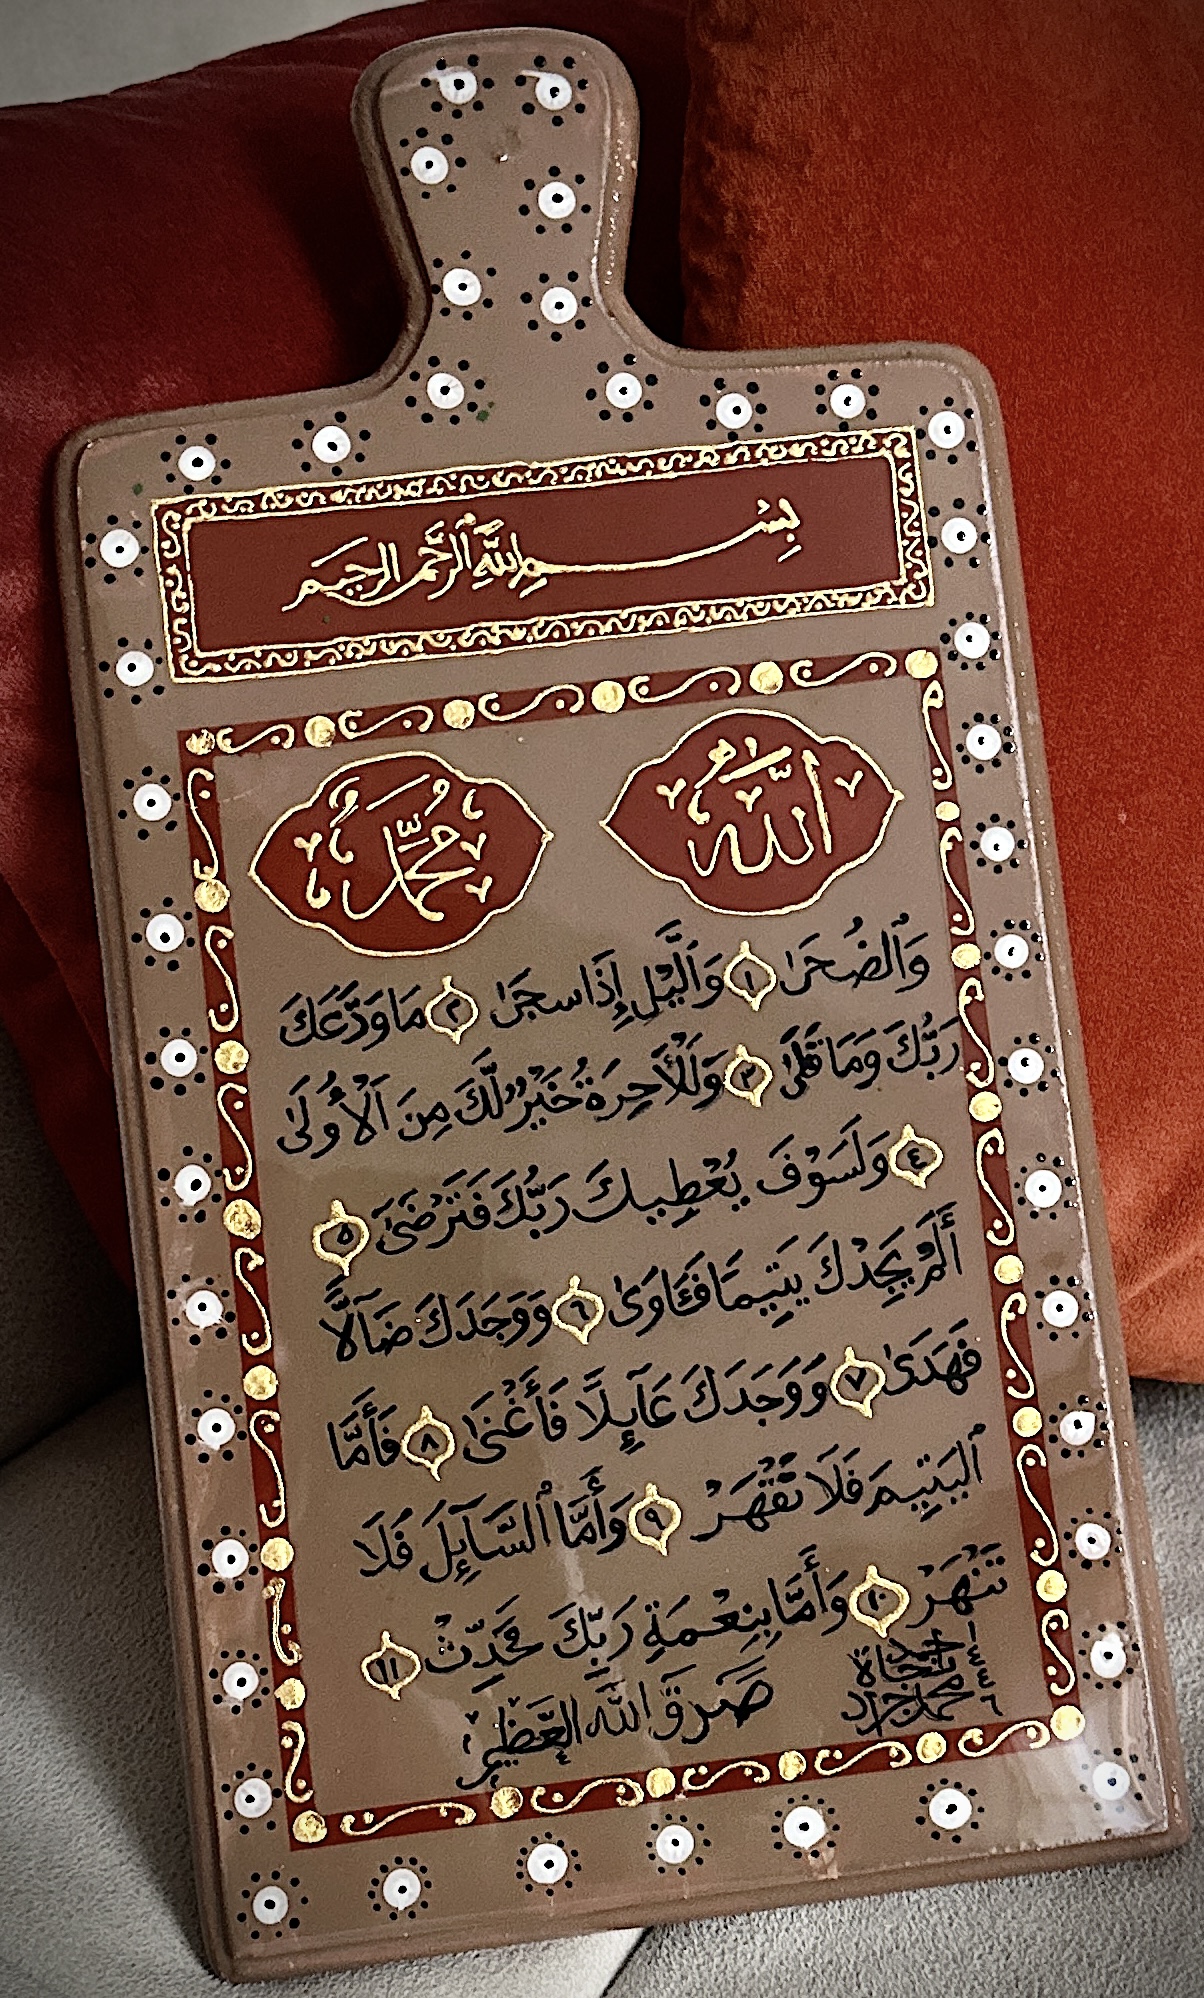 بِسْمِ اللَّهِ الرَّحْمَٰنِ الرَّحِيمِ
اللَّه مُحَمَّد
وَٱلضُّحَىٰ ١ وَٱلَّيْلِ إِذَا سَجَىٰ ٢ مَا وَدَّعَكَ
رَبُّكَ وَمَا قَلَىٰ ٣ وَلَلْأَخِرَةُ خَيْرٌ لَّكَ مِنَ ٱلْأُولَىٰ
٤ وَلَسَوْفَ يُعْطِيكَ رَبُّكَ فَتَرْضَىٰ ٥
أَلَمْ يَجِدْكَ يَتِيمًا فَـَٔاوَىٰ ٦ وَوَجَدَكَ ضَآلًّا
فَهَدَىٰ ٧ وَوَجَدَكَ عَآئِلًا فَأَغْنَىٰ ٨ فَأَمَّا
ٱلْيَتِيمَ فَلَا تَقْهَرْ ٩ وَأَمَّا ٱلسَّآئِلَ فَلَا
تَنْهَرْ ١٠ وَأَمَّا بِنِعْمَةِ رَبِّكَ فَحَدِّثْ ١١
صَدَقَ اللَّهُ الْعَظِيمُ